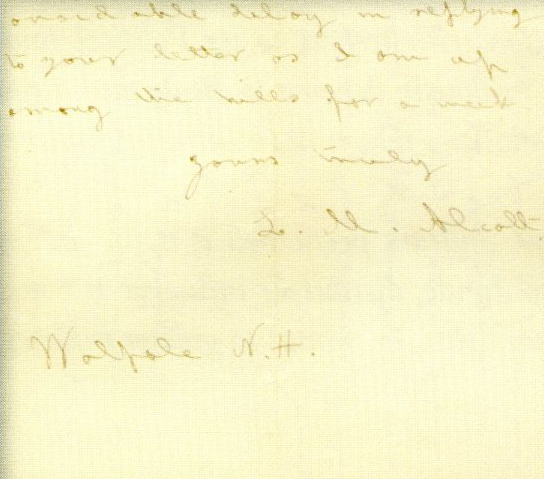 avoidable delay in replying
to your letter as I am up
among the hills for a week
yours truly
L. M. Alcott.
Walpole N.H.